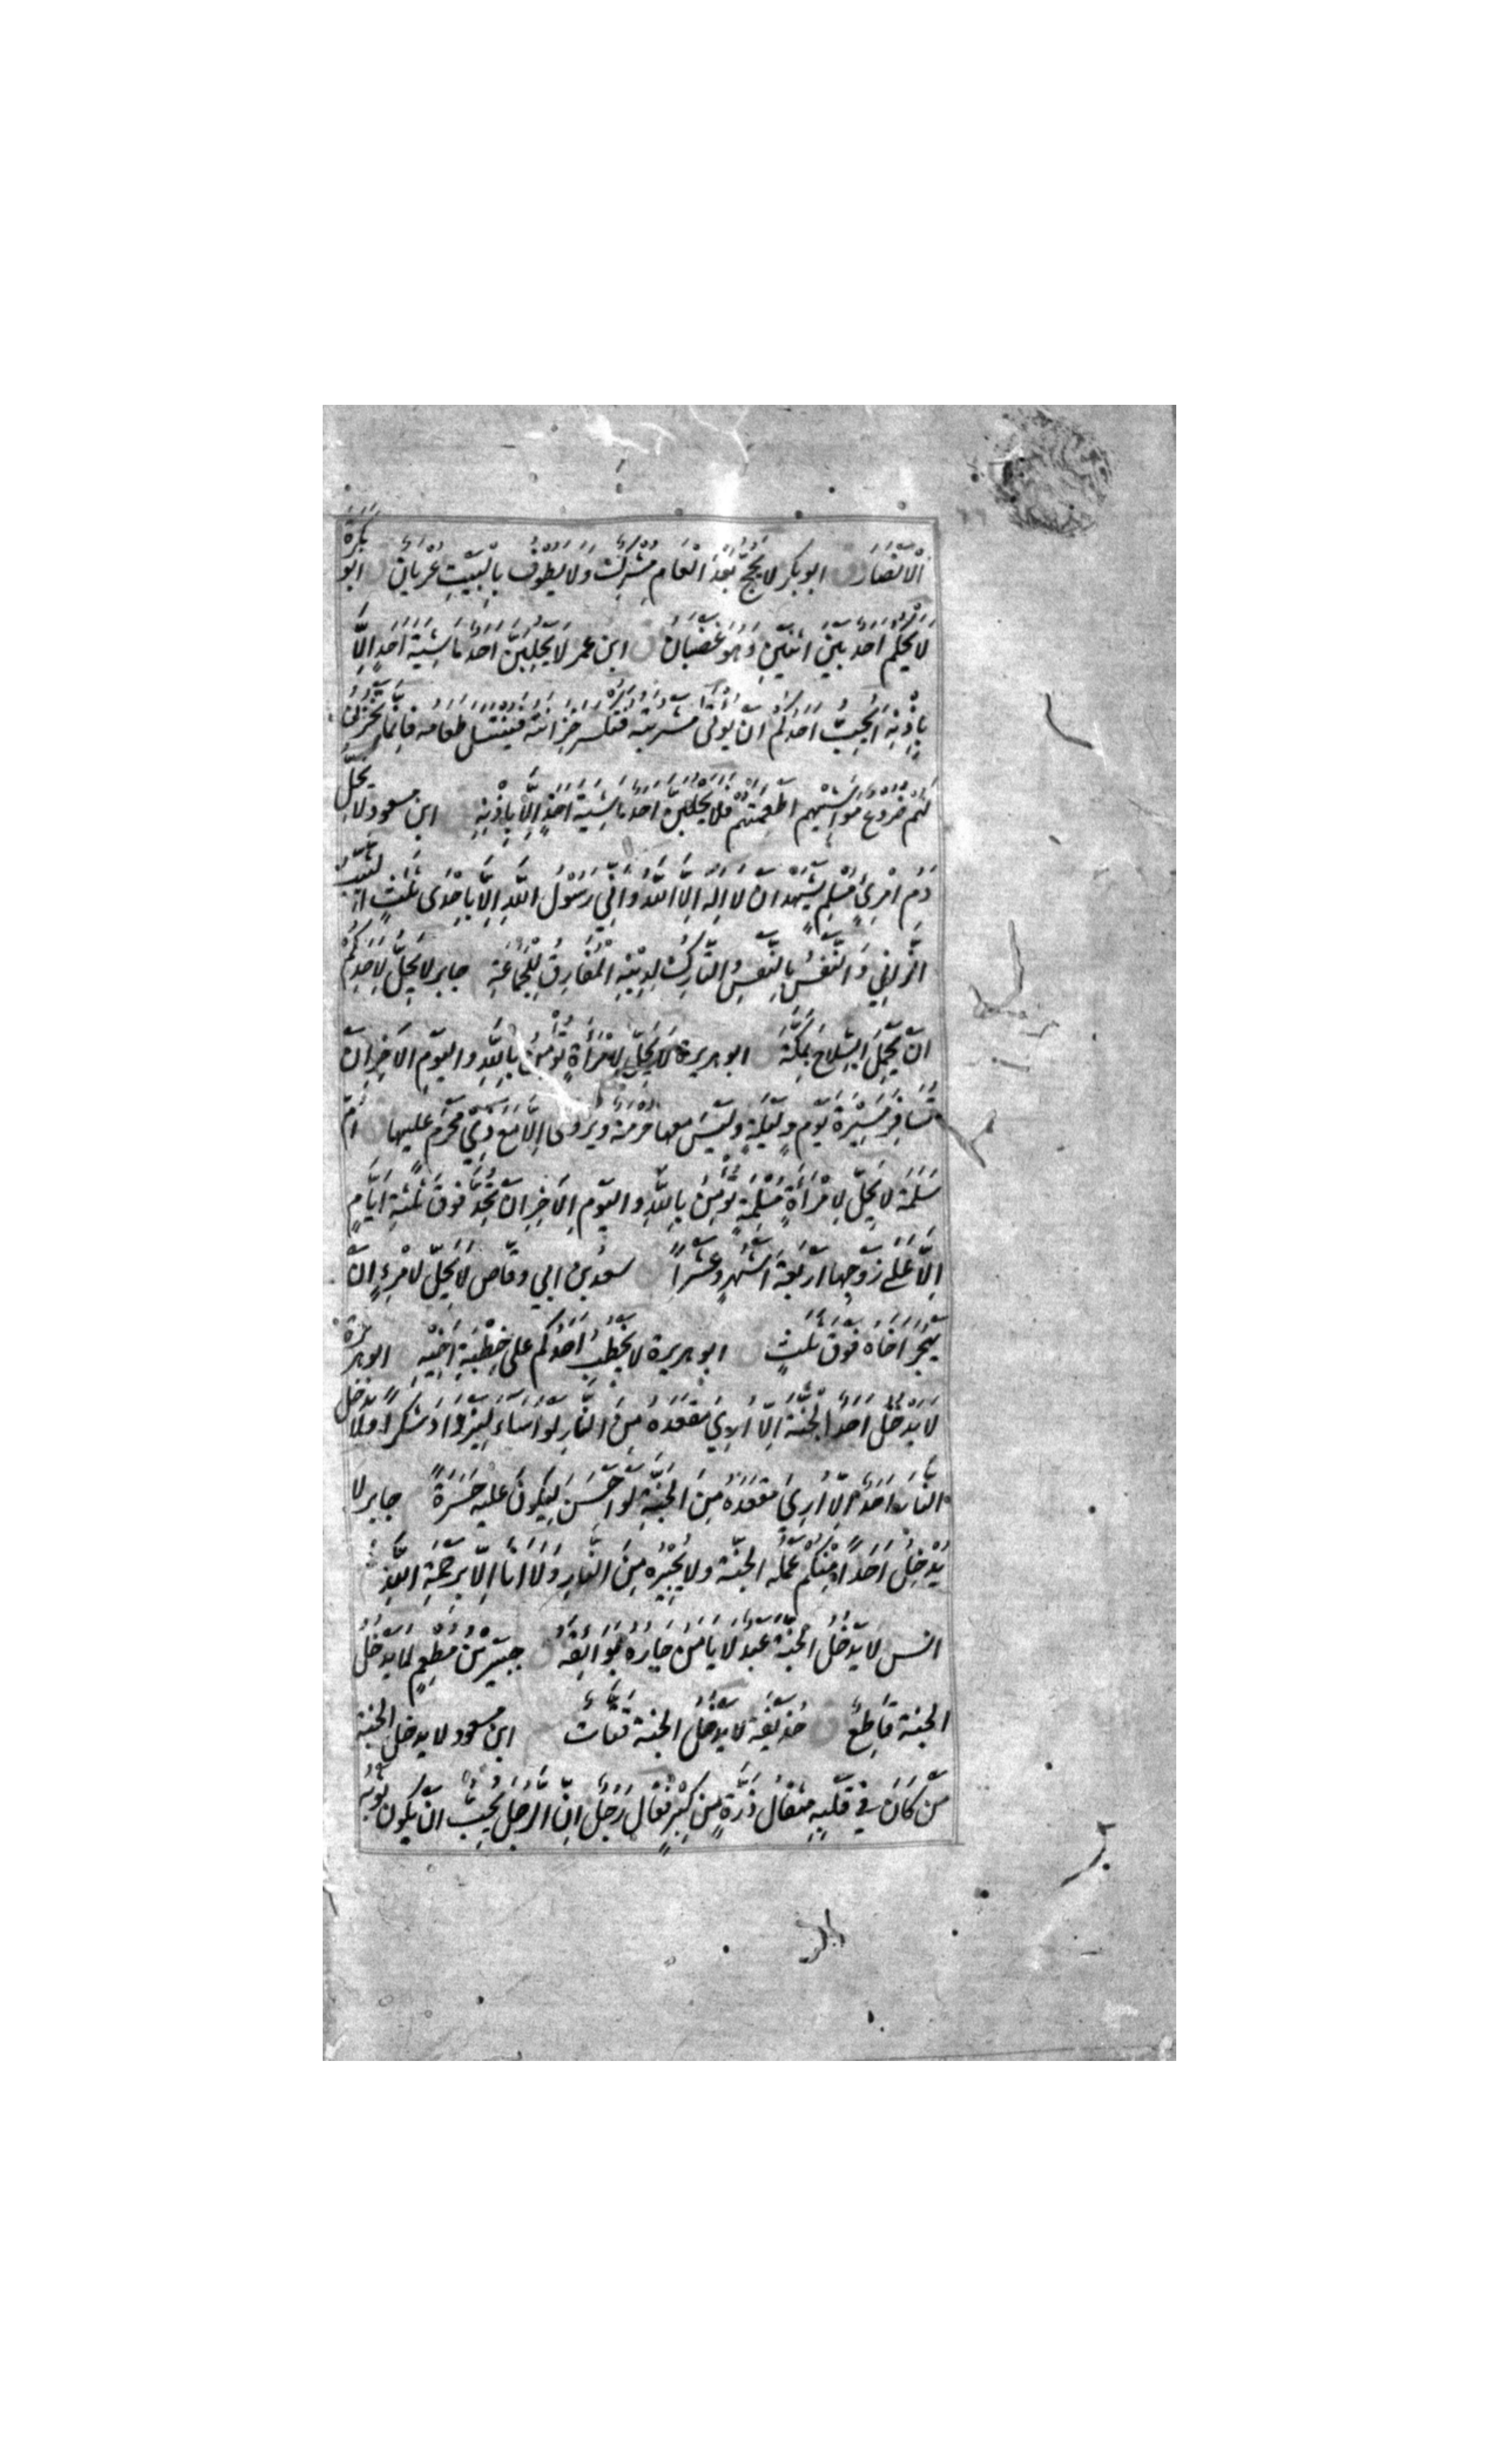 الْاَنْصَارَ ق ابوبكر لا يَحُجُّ بَعْدَ الْعَامِ مُشْرِكٌ وَلَا يَطُوْفُ بِالْبَيْتِ عُرْيَانٌ ق ابو بَكْرَةَ
لَا يَحْكُمْ اَحَدٌ بَيْنَ اثْنَيْنِ وَهُوَ غَضْبَانُ ق ابن عمر لَا يَحْلِبَنَّ اَحَدٌ مَاشِيَةَ اَحَدٍ اِلَّا
بِاِذْنِهٖ اَيُحِبُّ اَحَدُكُمْ اَنْ يُؤْتٰى مَشْرُبَتُهٗ فَتُكْسَرَ خِزَانَتُهٗ فَيُنْتَثَلَ طَعَامُهٗ فَاِنَّمَا تَخْزُنُ
لَهُمْ ضُرُوْعُ مَوَاشِيْهِمْ اَطْعِمَتَهُمْ فَلَا يَحْلُبَنَّ اَحَدٌ مَاشِيَةَ اَحَدٍ اِلَّا بِاِذْنِهٖ ابن مسعود لا يَحِلُّ
دَمُ امْرِئٍ مُسْلِمٍ يَشْهَدُ اَنْ لَا اِلٰهَ اِلَّا اللّٰهُ وَاَنِّيْ رَسُوْلُ اللّٰهِ اِلَّا بِاِحْدٰى ثَلٰثٍ الثَّيِّبُ
الزَّانِيْ وَالنَّفْسُ بِالنَّفْسِ وَالتَّارِكُ لِدِيْنِهِ الْمُفَارِقُ لِلْجَمَاعَةِ جابر لا يَحِلُّ لِاَحَدِكُمْ
اَنْ يَحْمِلَ السِّلَاحَ بِمَكَّةَ ق ابو هريرة لَا يَحِلُّ لِامْرَأَةٍ تُؤْمِنُ بِاللّٰهِ وَالْيَوْمِ الْاٰخِرِ اَنْ
تُسَافِرَ مَسِيْرَةَ يَوْمٍ وَلَيْلَةٍ وَلَيْسَ مَعَهَا حُرْمَةٌ وَيُرْوٰى اِلَّا مَعَ ذِيْ مَحْرَمٍ عليها ق اُمّ
سَلَمَةَ لَا يَحِلُّ لِامْرَأَةٍ مُسْلِمَةٍ تُؤْمِنُ بِاللّٰهِ وَالْيَوْمِ الْاٰخِرِ اَنْ تُحِدَّ فَوْقَ ثَلٰثَةِ اَيَّامٍ
اِلَّا عَلٰى زَوْجِهَا اَرْبَعَةَ اَشْهُرٍ وَعَشْرًا ق سعد بن ابي وقاص لَا يَحِلُّ لِامْرِءٍ اَنْ
يَهْجُرَ اَخَاهُ فَوْقَ ثَلٰثٍ ق ابو هريرة لا يَخْطُبُ اَحَدُكُمْ على خِطْبَةِ اَخِيْهِ ق ابو هريرة
لَا يَدْخُلُ اَحَدٌ الْجَنَّةَ اِلَّا اُرِيَ مَقْعَدَهٗ مِنَ النَّارِ لَوْ اَسَاءَ لِيَزْدَادَ شُكْرًا وَلَا يَدْخُلُ
النَّارَ اَحَدٌ اِلَّا اُرِيَ مَقْعَدَهٗ مِنَ الْجَنَّةِ لَوْ اَحْسَنَ لِيَكُوْنَ عليه حَسْرَةً جابر لا
يُدْخِلُ اَحَدًا مِنْكُمْ عَمَلُهُ الجنّة ولا يُجِيْرُهٗ مِنَ النَّارِ وَلَا اَنَا اِلَّا بِرَحْمَةِ اللّٰهِ
انس لَا يَدْخُلُ الْجَنَّةَ عَبْدٌ لَا يَأْمَنُ جَارُهٗ بَوَائِقَهٗ ق جبير بْنُ مُطْعِمٍ لا يَدْخُلُ
الجنة قَاطِعٌ ق حُذَيْفَة لا يَدْخُلُ الجنة قَتَّاتٌ ابن مسعود لا يدخل الجنة
مَنْ كَانَ فِيْ قَلْبِهٖ مِثْقَالُ ذَرَّةٍ مِنْ كِبْرٍ فَقَالَ رَجُلٌ اِنَّ الرَّجُلَ يُحِبُّ اَنْ يَكُوْنَ ثَوْبُهٗ